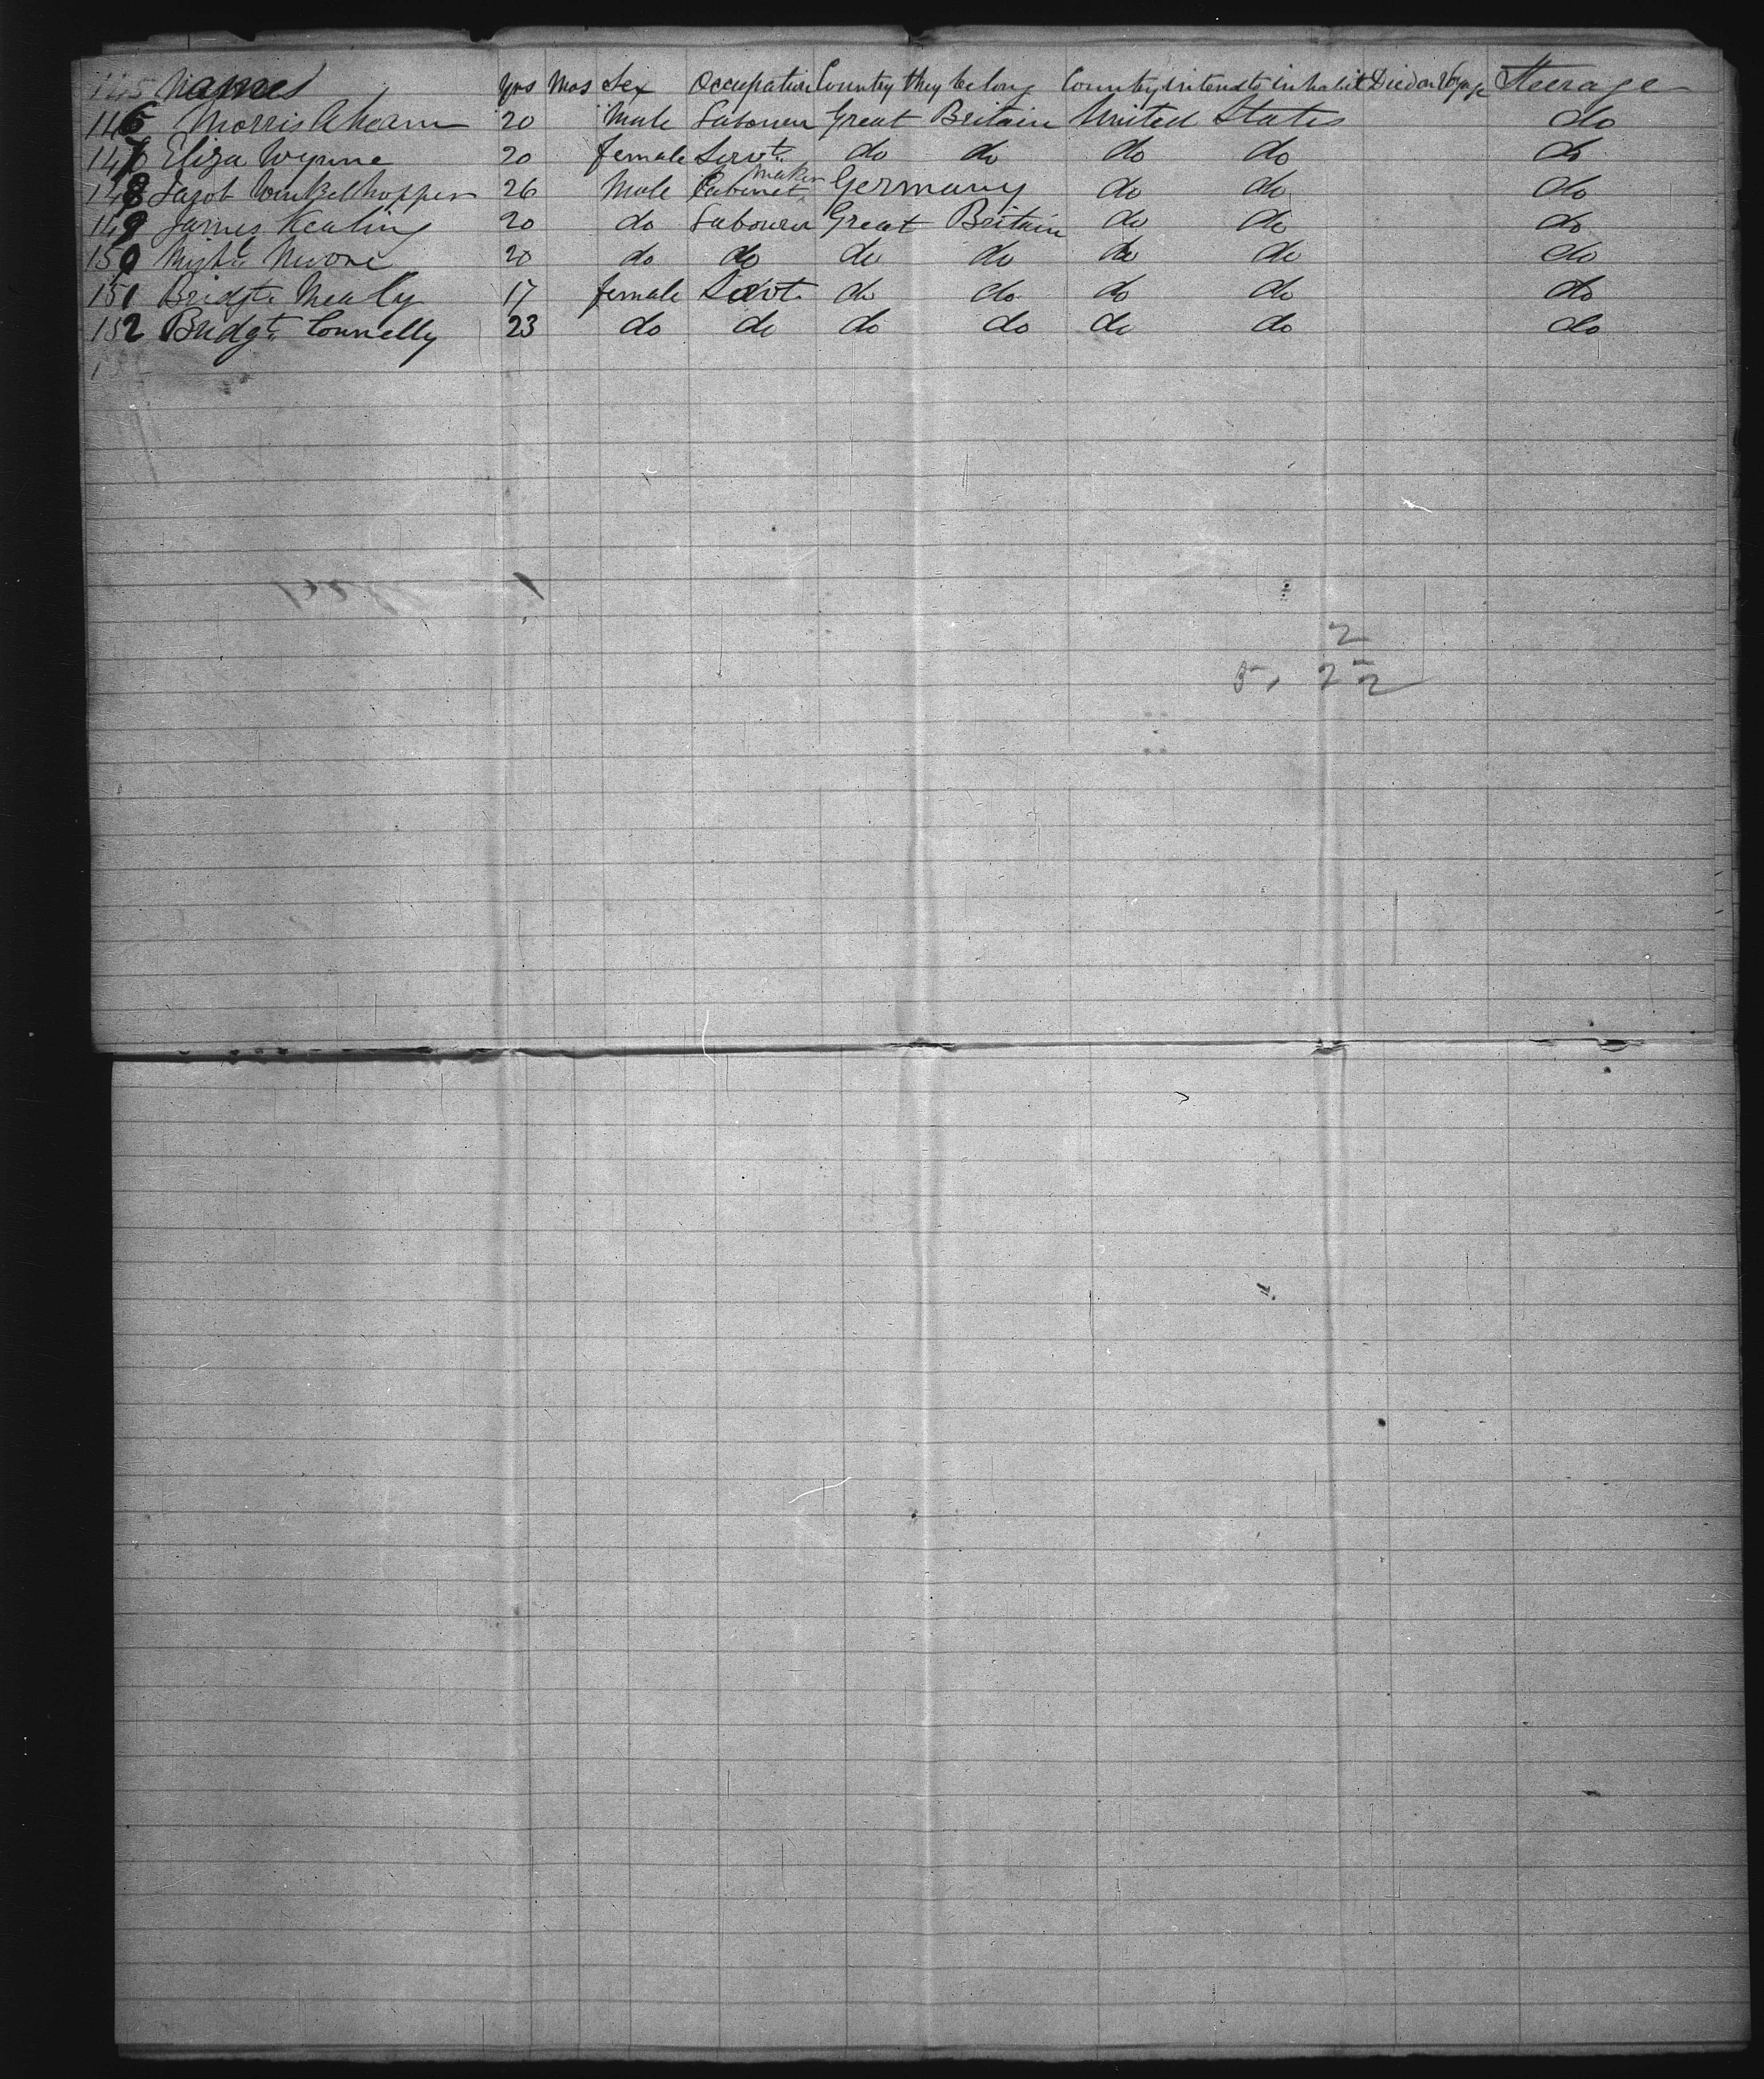 145 Names Yrs Mos Sex Occupation Country they belong Country intends to inhabit Died on Voyage Steerage
146 Morris Ahearn 20 Male Labourer Great Britain United States do
147 Eliza Wynne 20 female Servt. do do do do do
maker
148 Jacob Winkelhopper 26 Male Cabinet Germany do do do
149 James Keating 20 do Labourer Great Britain do do do
150 Michl. Moore 20 do do do do do do do
151 Bridgt. Mealy 17 female Servt. do do do do do
152 Bridgt. Connelly 23 do do do do do do do
2
5, 2 2